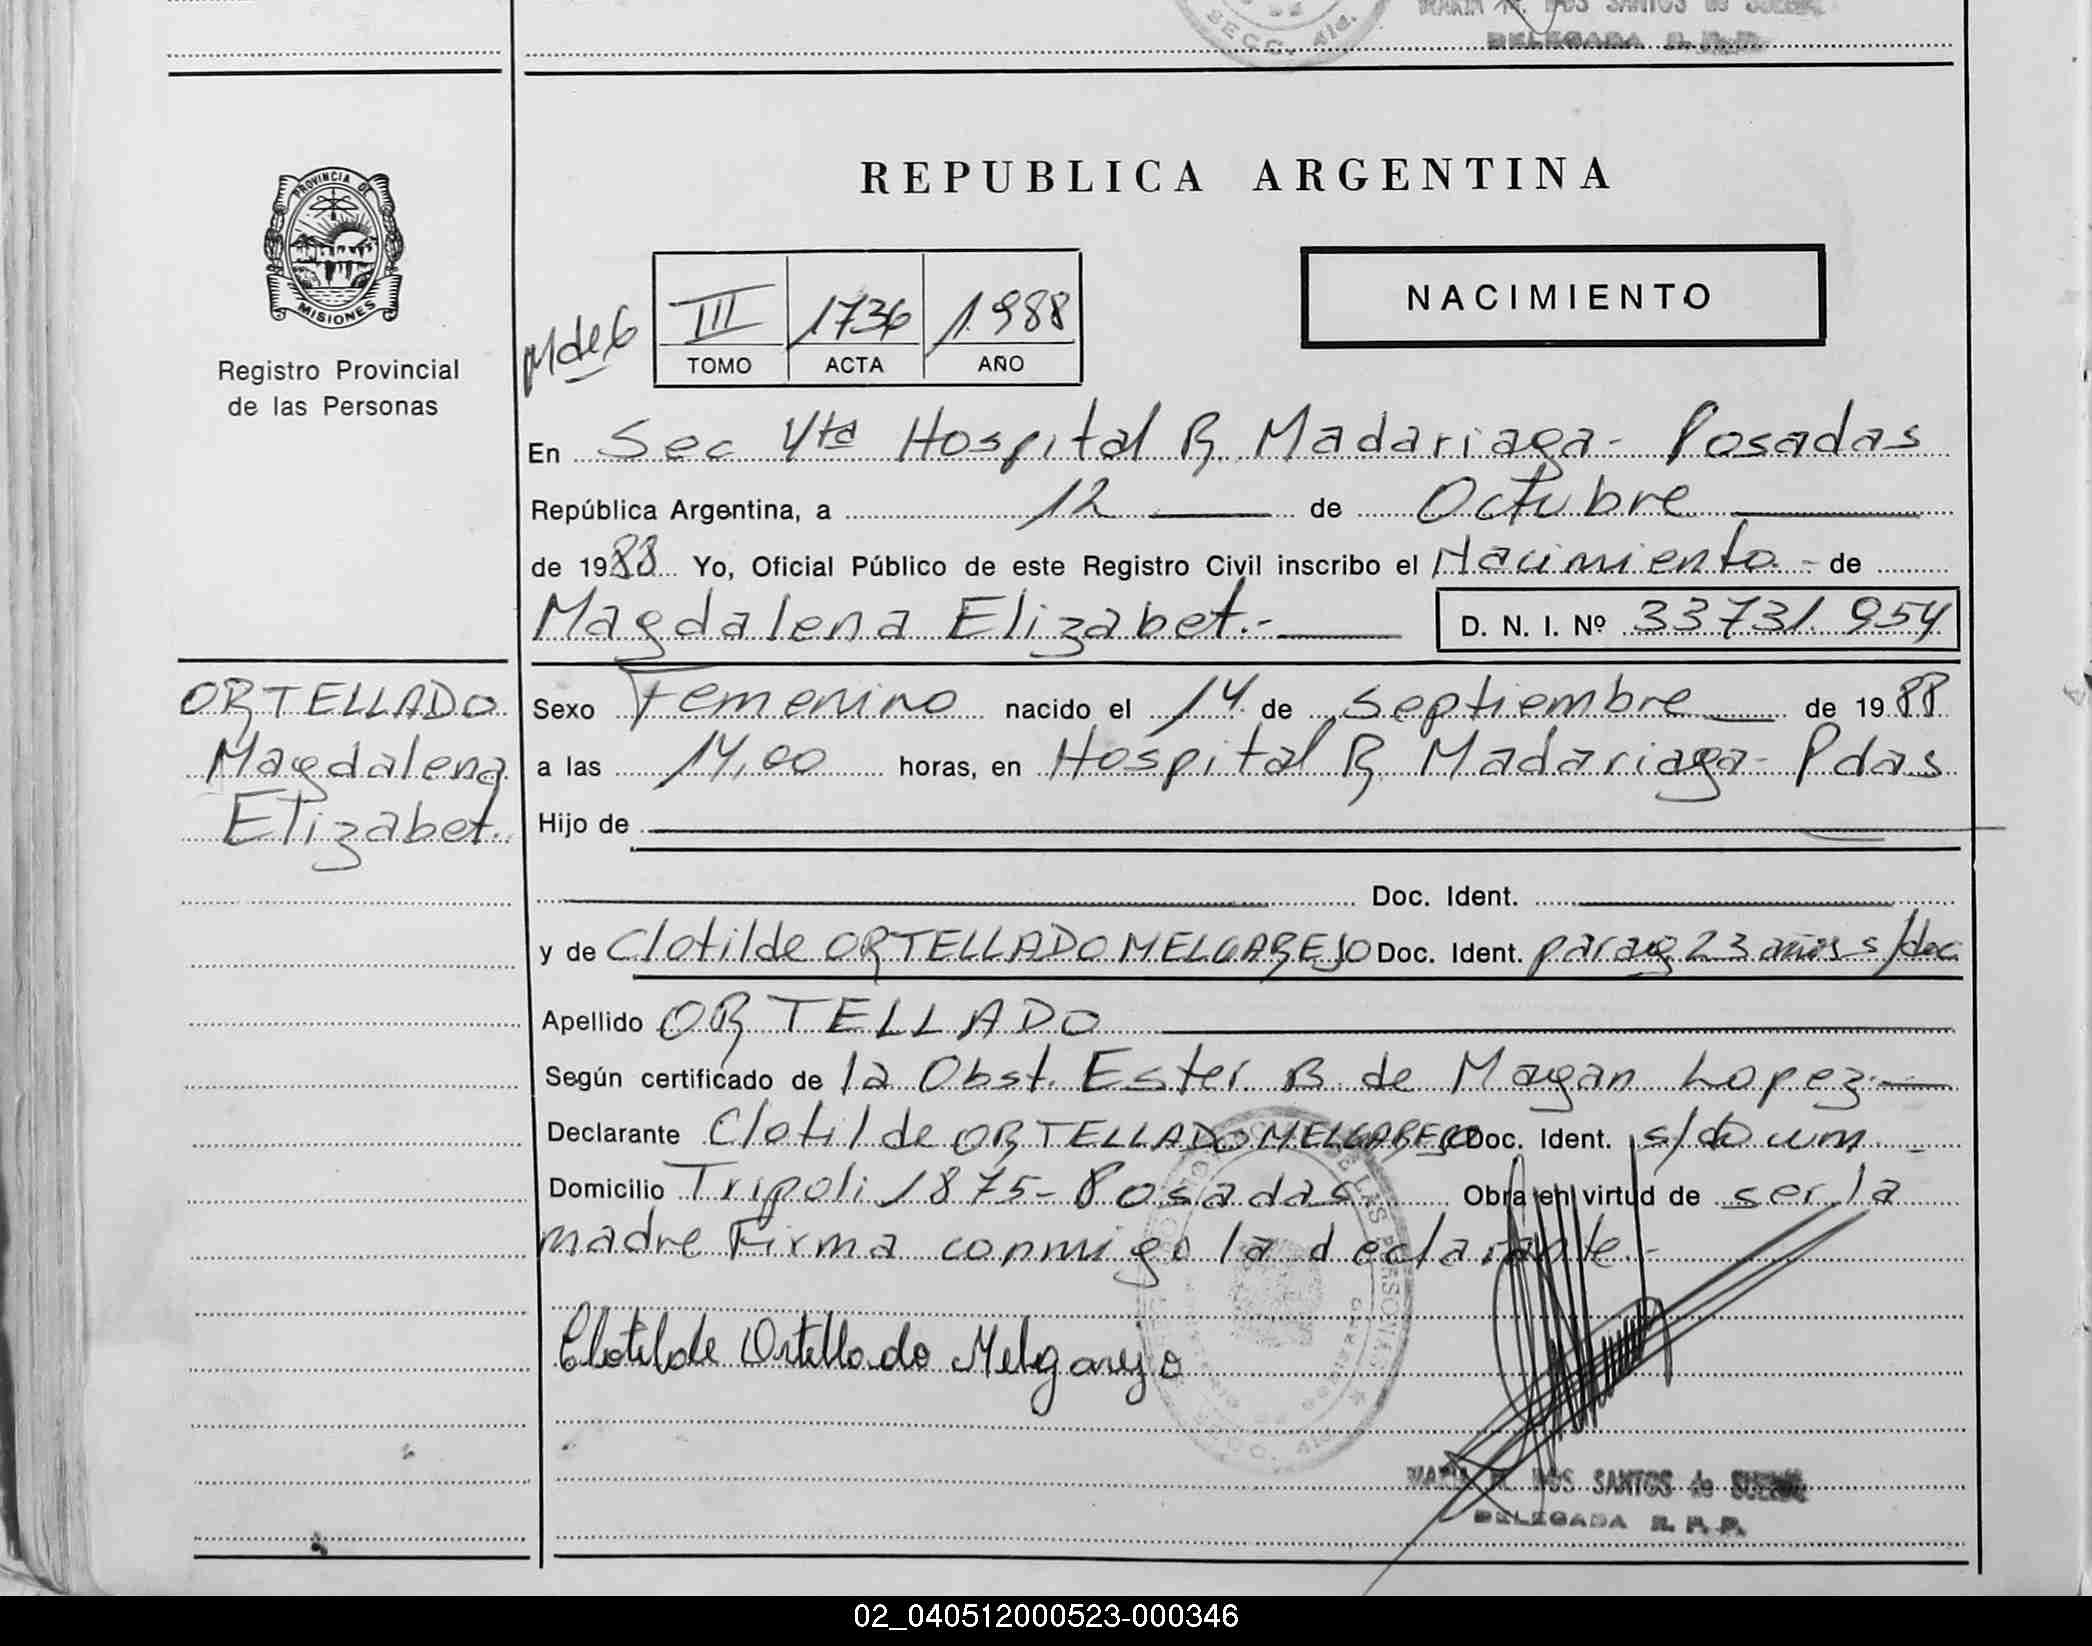 MARIA R. DOS SANTOS de
SECC. 4ta.
DELEGADA R. P. P.
REPUBLICA ARGENTINA
PROVINCIA DE
MISIONES
Registro Provincial
de las Personas
III 1736 1.988
TOMO ACTA AÑO
NACIMIENTO
En Sec 4ta Hospital R Madariaga - Posadas
República Argentina, a 12 de Octubre
de 1988 Yo, Oficial Público de este Registro Civil inscribo el Nacimiento - de
Magdalena Elizabet.- D. N. I. Nº 33731.954
ORTELLADO
Magdalena
Elizabet.
Sexo Femenino nacido el 14 de septiembre de 1988
a las 14,00 horas, en Hospital R Madariaga - Pdas
Hijo de
Doc. Ident.
y de Clotilde ORTELLADO MELGAREJO Doc. Ident. parag 23 años s/doc
Apellido ORTELLADO
Según certificado de la Obst. Ester B de Magan Lopez.-
Declarante Clotilde ORTELLADO MELGAREJO Doc. Ident. s/docum.
Domicilio Tripoli 1875 - Posadas Obra en virtud de ser la
madre Firma conmigo la declarante.-
Clotilde Ortellado Melgarejo
MARIA R. DOS SANTOS de
DELEGADA R. P. P.
02_040512000523-000346